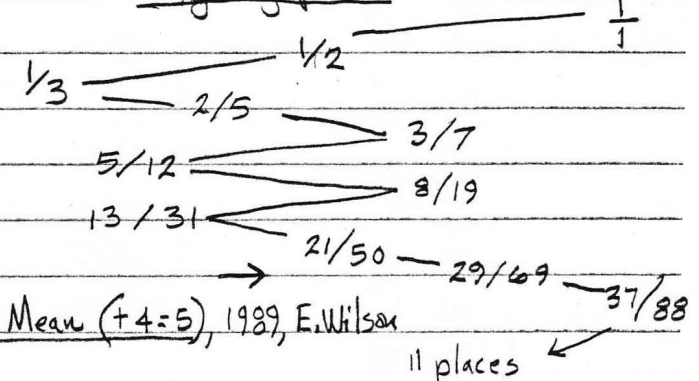 1/1
1/2
1/3
2/5
3/7
5/12
8/19
13/31
21/50
29/69
37/88
Mean (+4=5), 1989, E. Wilson
11 places